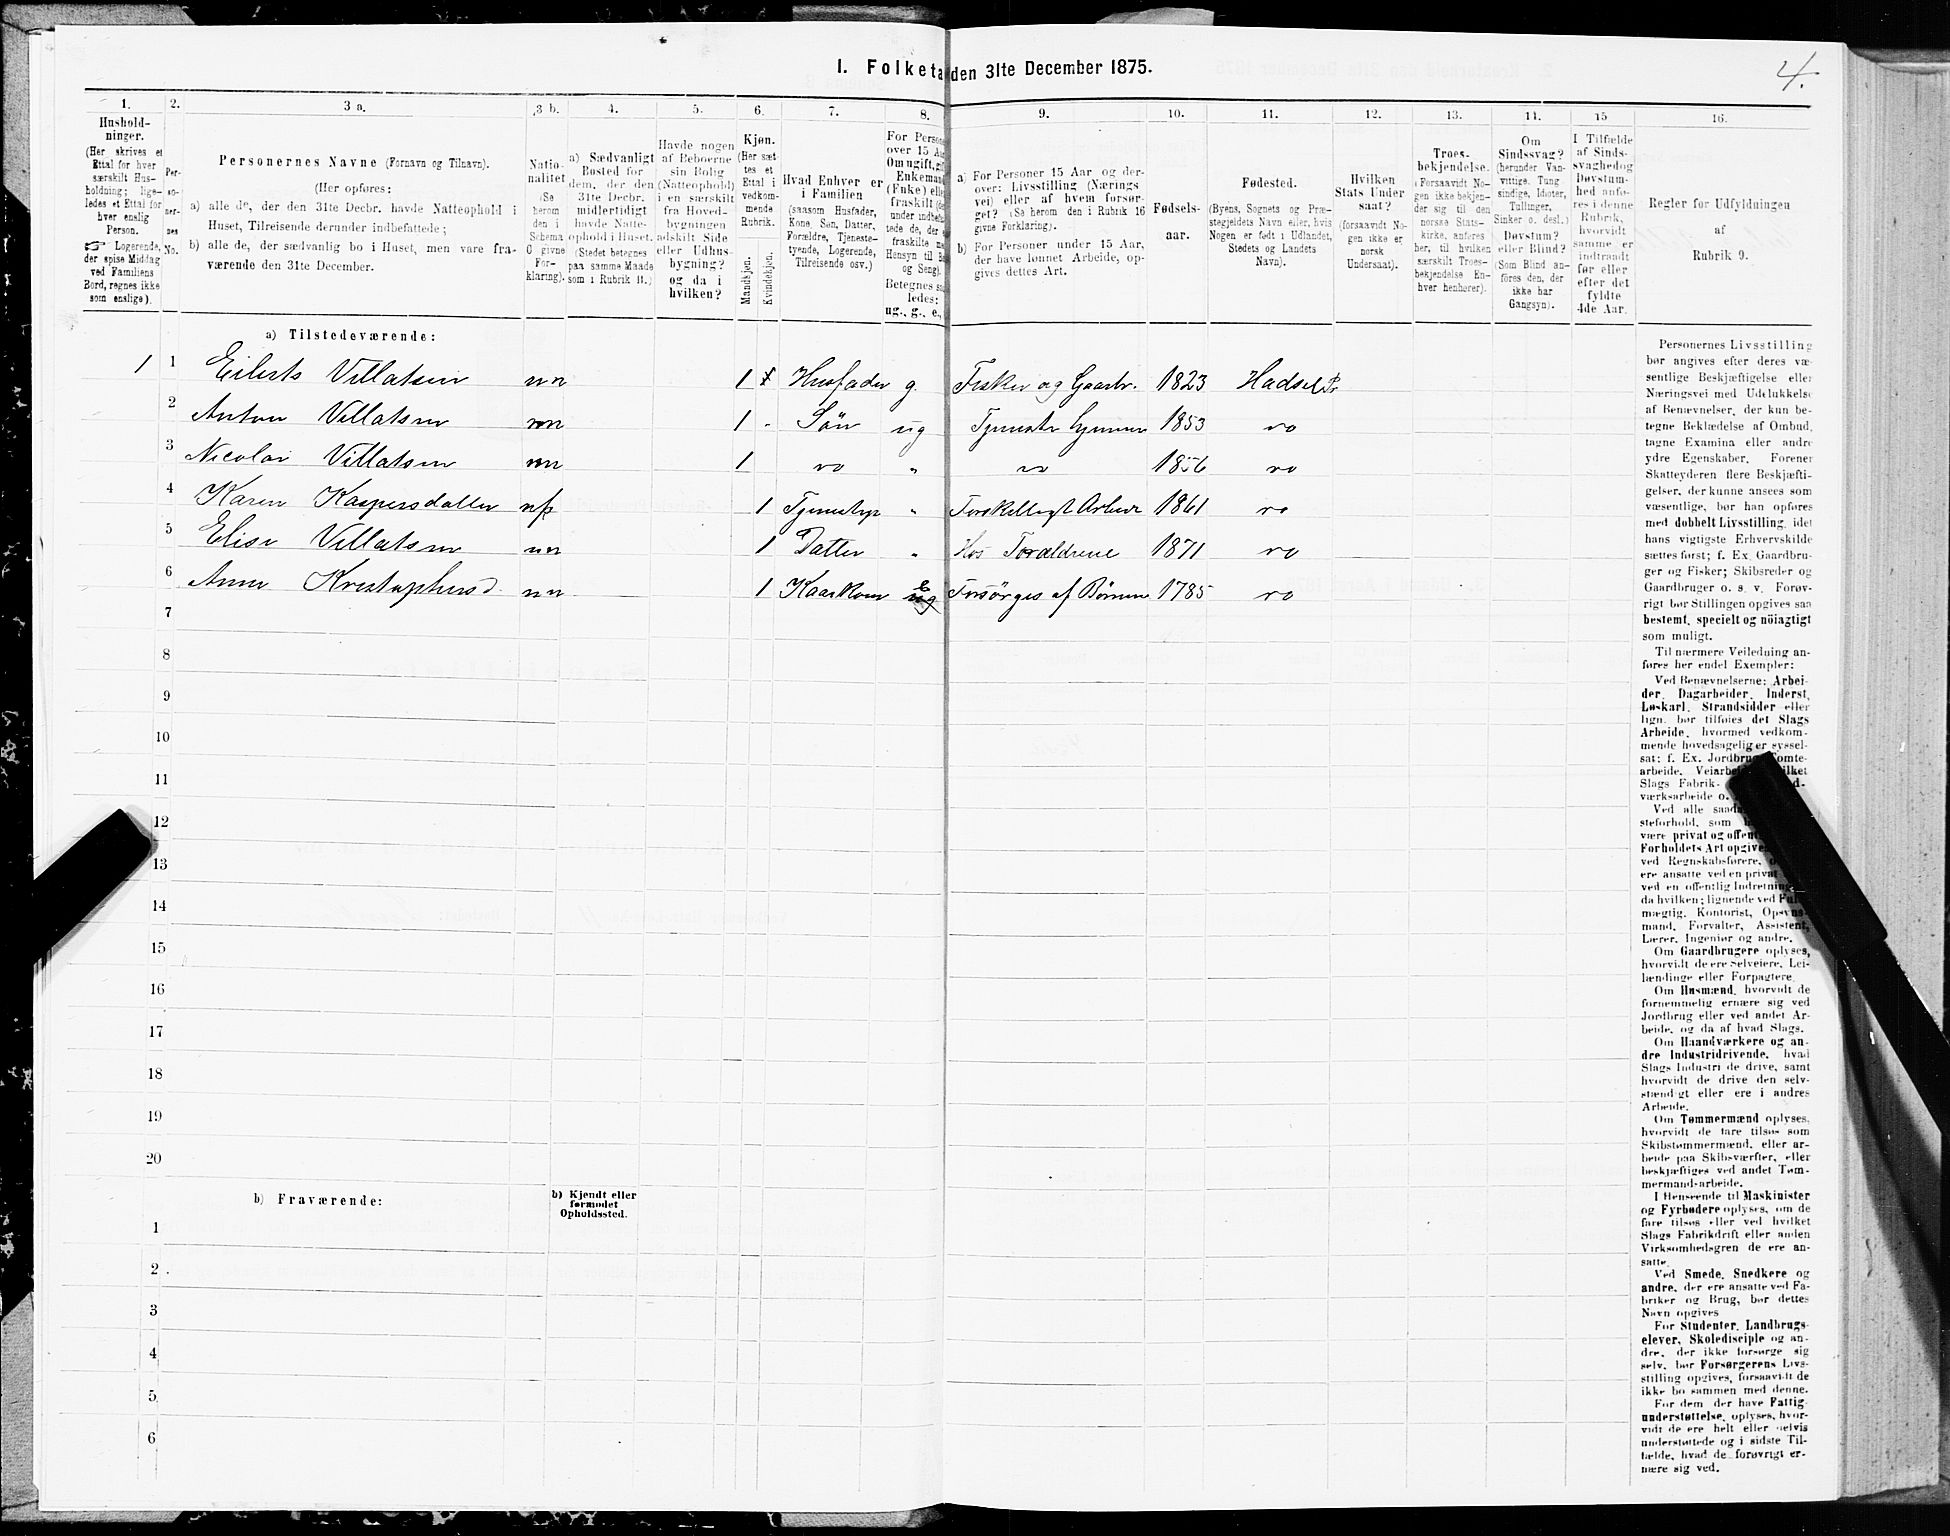 I. Folketa den 31te December 1875.
4.
1.
Hushold-
ninger.
(Her skrives et
Ettal for hver
særskilt Hus-
holdning; lige-
ledes et Ettal for
hver enslig
Person.
Logerende,
der spise Middag
ved Familiens
Bord, regnes ikke
som enslige).
2.
Per-
so-
ner-
nes
No.
3 a.
Personernes Navne (Fornavn og Tilnavn).
(Her opføres:
a) alle de, der den 31te Decbr. havde Natteophold i
Huset, Tilreisende derunder indbefattede;
b) alle de, der sædvanlig bo i Huset, men vare fra-
værende den 31te December.
3 b.
Natio-
nalitet
(Se
herom
den i
Schema
givne
For-
klaring).
4.
a) Sædvanligt
Bosted for
dem, der den
31te Decbr.
midlertidigt
havde Natte-
ophold i Huset.
(Stedet betegnes
paa samme Maade
som i Rubrik 11.)
5.
Havde nogen
af Beboerne
sin Bolig
(Natteophold)
i en særskilt
fra Hoved-
bygningen
adskilt Side
eller Udhus-
bygning?
og da i
hvilken?
6.
Kjøn.
(Her sæt-
tes et
Ettal i
vedkom-
mende
Rubrik.
Mandkjøn.
Kvindekjøn.
7.
Hvad Enhver er
i Familien
(saasom Husfader,
Kone, Søn, Datter,
Forældre, Tjeneste-
tyende, Logerende,
Tilreisende osv.)
8.
For Perso
over 15 Aa
Om ugift, gif
Enkemand
(Enke) elle
fraskilt
ug., g., e.,
9.
a) For Personer 15 Aar og der-
over: Livsstilling (Nærings
vei) eller af hvem forsør-
get? (Se herom den i Rubrik 16
givne Forklaring).
b) For Personer under 15 Aar,
der have lønnet Arbeide, op-
gives dettes Art.
10.
Fødsels-
aar.
11.
Fødested.
(Byens, Sognets og Præ-
stegjeldets Navn eller, hvis
Nogen er født i Udlandet,
Stedets og Landets
Navn).
12.
Hvilken
Stats Under
saat?
(forsaavidt No-
gen ikke er
norsk
Undersaat).
13.
Troes-
bekjendelse.
(Forsaavidt No-
gen ikke bekjen-
der sig til den
norske Stats-
kirke, anføres
her, til hvilken
særskilt Troes-
bekjendelse En-
hver henhører).
14.
Om
Sindssvag?
(herunder Van-
vittige, Tung
sindige, Idioter,
Tullinger,
Sinker o. desl.)
Døvstum?
eller Blind?
(Som Blind an-
føres den, der
ikke har
Gangsyn).
15
I Tilfælde
af Sinds-
svaghed og
Døvstum-
hed anfø-
res i denne
Rubrik,
hvorvidt
samme er
indtraadt
før eller
efter det
fyldte
4de Aar.
16.
Regler for Udfyldningen
af
Rubrik 9.
a) Tilstedeværende:
1 1 Eilerts Villatsen nn 1 Husfader g. Fisker og Gaardbr. 1823 Hadsel Pr
2 Anton Villatsen nn 1 Søn ug 1853 vo
3 Nicolai Villatsen nn 1 vo „ vo 1856 vo
4 Karen Kaspersdatter nf 1 „ Forskelligt Arbeide 1861 vo
5 Elise Villatsen nn 1 Datter „ Hos Forældrene 1871 vo
6 Anne Kristophersd. nn 1 Kaarkone e Forsörges af Börnene 1785 vo
7
8
9
10
11
12
13
14
15
16
17
18
19
20
b) Fraværende:
b) Kjendt eller
formodet
Opholdssted.
1
2
3
4
5
6
Personernes Livsstilling
bør angives efter deres væ-
sentlige Beskjæftigelse eller
Næringsvei med Udelukkelse
af Benævnelser, der kun be-
tegne Beklædelse af Ombud,
tagne Examina eller andre
ydre Egenskaber. Forener
Skatteyderen flere Beskjæfti-
gelser, der kunne ansees som
væsentlige, bør han opføres
med dobbelt Livsstilling, idet
hans vigtigste Erhvervskilde
sættes først; f. Ex. Gaardbru-
ger og Fisker; Skibsreder og
Gaardbruger o. s. v. Forøv-
rigt bør Stillingen opgives saa
bestemt, specielt og nöiagtigt
som muligt.
Til nærmere Veiledning an-
føres her endel Exempler:
Ved Benævnelserne: Arbei-
der, Dagarbeider, Inderst,
Løskarl, Strandsidder eller
lign. bør tilføies det Slags
Arbeide, hvormed vedkom-
mende hovedsagelig er syssel-
sat; f. Ex. Jordbrug omte-
arbeide, Veiarbei ilket
Slags Fabrik- d-
værksarbeide o.
Ved alle saad
steforhold, som
være privat og offen
Forholdets Art opgive
ved Regnskabsførere, o
ere ansatte ved en privat
ved en offentlig Indretning
da hvilken; lignende ved Ful
mægtig, Kontorist, Opsyns-
mand, Forvalter, Assistent,
Lærer, Ingeniør og andre.
Om Gaardbrugere oplyses,
hvorvidt de ere Selveiere, Lei-
lændinge eller Forpagtere.
Om Husmænd, hvorvidt de
fornemmelig ernære sig ved
Jordbrug eller ved andet Ar-
beide, og da af hvad Slags.
Om Haandværkere og an-
dre Industridrivende, hvad
Slags Industri de drive, samt
hvorvidt de drive den selv-
stændigt eller ere i andres
Arbeide.
Om Tømmermænd oplyses,
hvorvidt de fare tilsøs som
Skibstømmermænd, eller ar-
beide paa Skibsværfter, eller
beskjæftiges ved andet Tøm-
mermand-arbeide.
I Henseende til Maskinister
og Fyrbødere oplyses, om de
fare tilsøs eller ved hvilket
Slags Fabrikdrift eller anden
Virksomhedsgren de ere an-
satte.
Ved Smede, Snedkere og
andre, der ere ansatte ved Fa-
briker og Brug, bør dettes
Navn opgives
For Studenter, Landbrugs-
elever, Skoledisciple og an-
dre, der ikke forsørge sig
selv, bør Forsørgerens Livs-
stilling opgives, forsaavidt de
ikke bo sammen med denne.
For dem, der have Fattig-
understøttelse, oplyses, hvor-
vidt de ere helt eller delvis
understøttede og i sidste Til-
fælde, hvad de forøvrigt er-
nære sig ved.